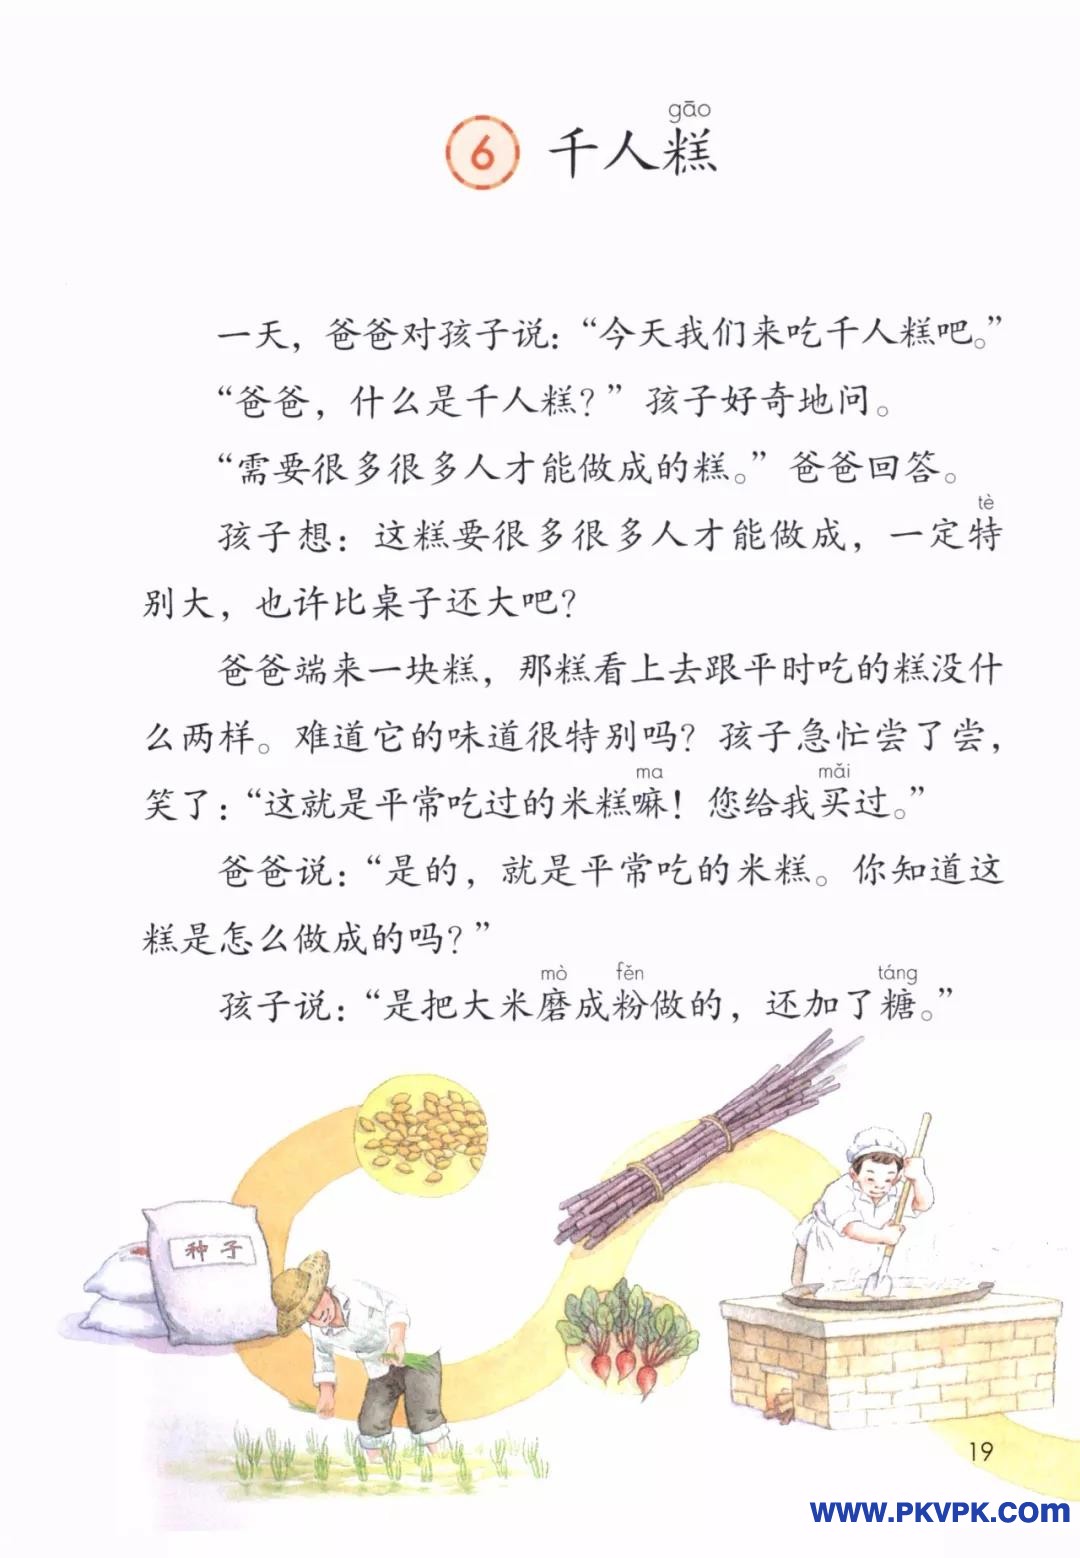 gāo
6 千人糕
一天，爸爸对孩子说：“今天我们来吃千人糕吧。”
“爸爸，什么是千人糕？”孩子好奇地问。
“需要很多很多人才能做成的糕。”爸爸回答。
tè
孩子想：这糕要很多很多人才能做成，一定特
别大，也许比桌子还大吧？
爸爸端来一块糕，那糕看上去跟平时吃的糕没什
么两样。难道它的味道很特别吗？孩子急忙尝了尝，
ma mǎi
笑了：“这就是平常吃过的米糕嘛！您给我买过。”
爸爸说：“是的，就是平常吃的米糕。你知道这
糕是怎么做成的吗？”
mò fěn táng
孩子说：“是把大米磨成粉做的，还加了糖。”
种子
19
www.PKVPK.com